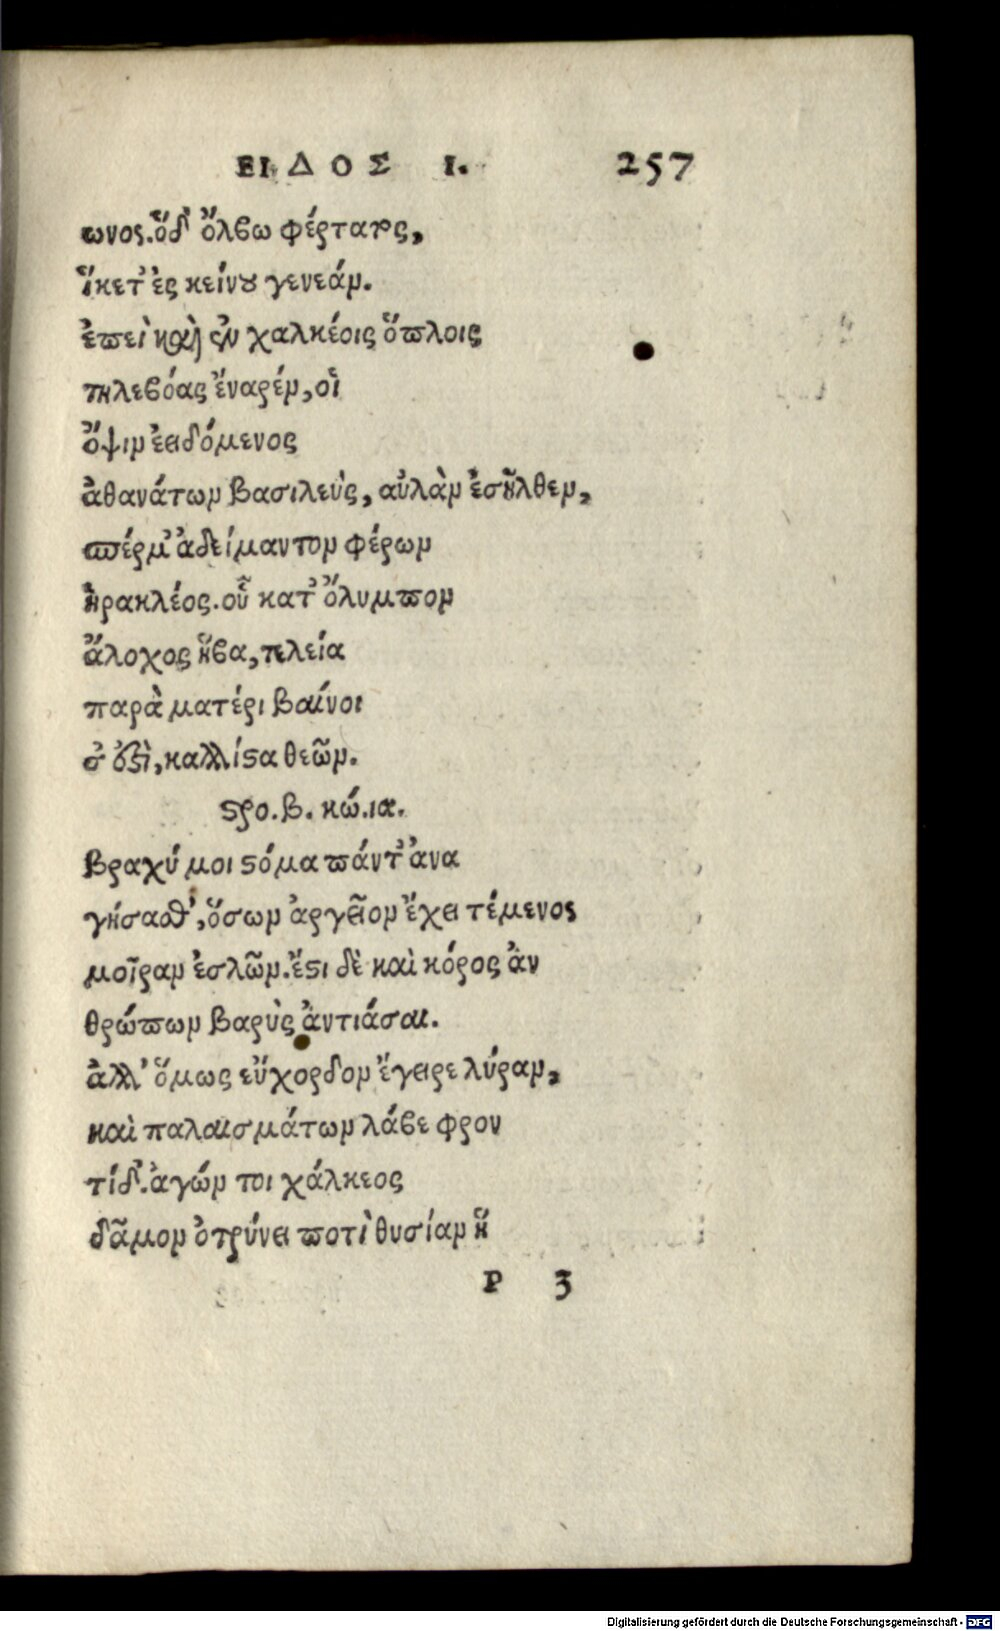 ΕΙΔΟΣ Ι. 257
ωνος. ὅδ' ὄλβῳ φέρτατος,
ἵκετ' ἐς κείνου γενεάν.
ἐπεὶ καὶ ἐν χαλκέοις ὅπλοις
τηλεβόας ἔναρέν, οἱ
ὄψιν ἐειδόμενος
ἀθανάτων βασιλεὺς, αὐλὰν ἐσοῦλθεν,
σπέρμ' ἀδείμαντον φέρων
ἡρακλέος. οὗ κατ' ὄλυμπον
ἄλοχος ἥβα, τελεία
παρὰ ματέρι βαίνοι
σ' ἐστὶ, καλλίστα θεῶν.
στρο. β. κώ. ια.
βραχύ μοι στόμα πάντ' ἀνα
γήσασθ', ὅσων ἀργεῖον ἔχει τέμενος
μοῖραν ἐσλῶν. ἔστι δὲ καὶ κόρος ἀν
θρώπων βαρὺς ἀντιάσαι.
ἀλλ' ὅμως εὔχορδον ἔγειρε λύραν,
καὶ παλαισμάτων λάβε φρον
τίδ'. ἀγών τοι χάλκεος
δᾶμον ὀτρύνει ποτὶ θυσίαν ἥ
P 3
Digitalisierung gefördert durch die Deutsche Forschungsgemeinschaft - DFG